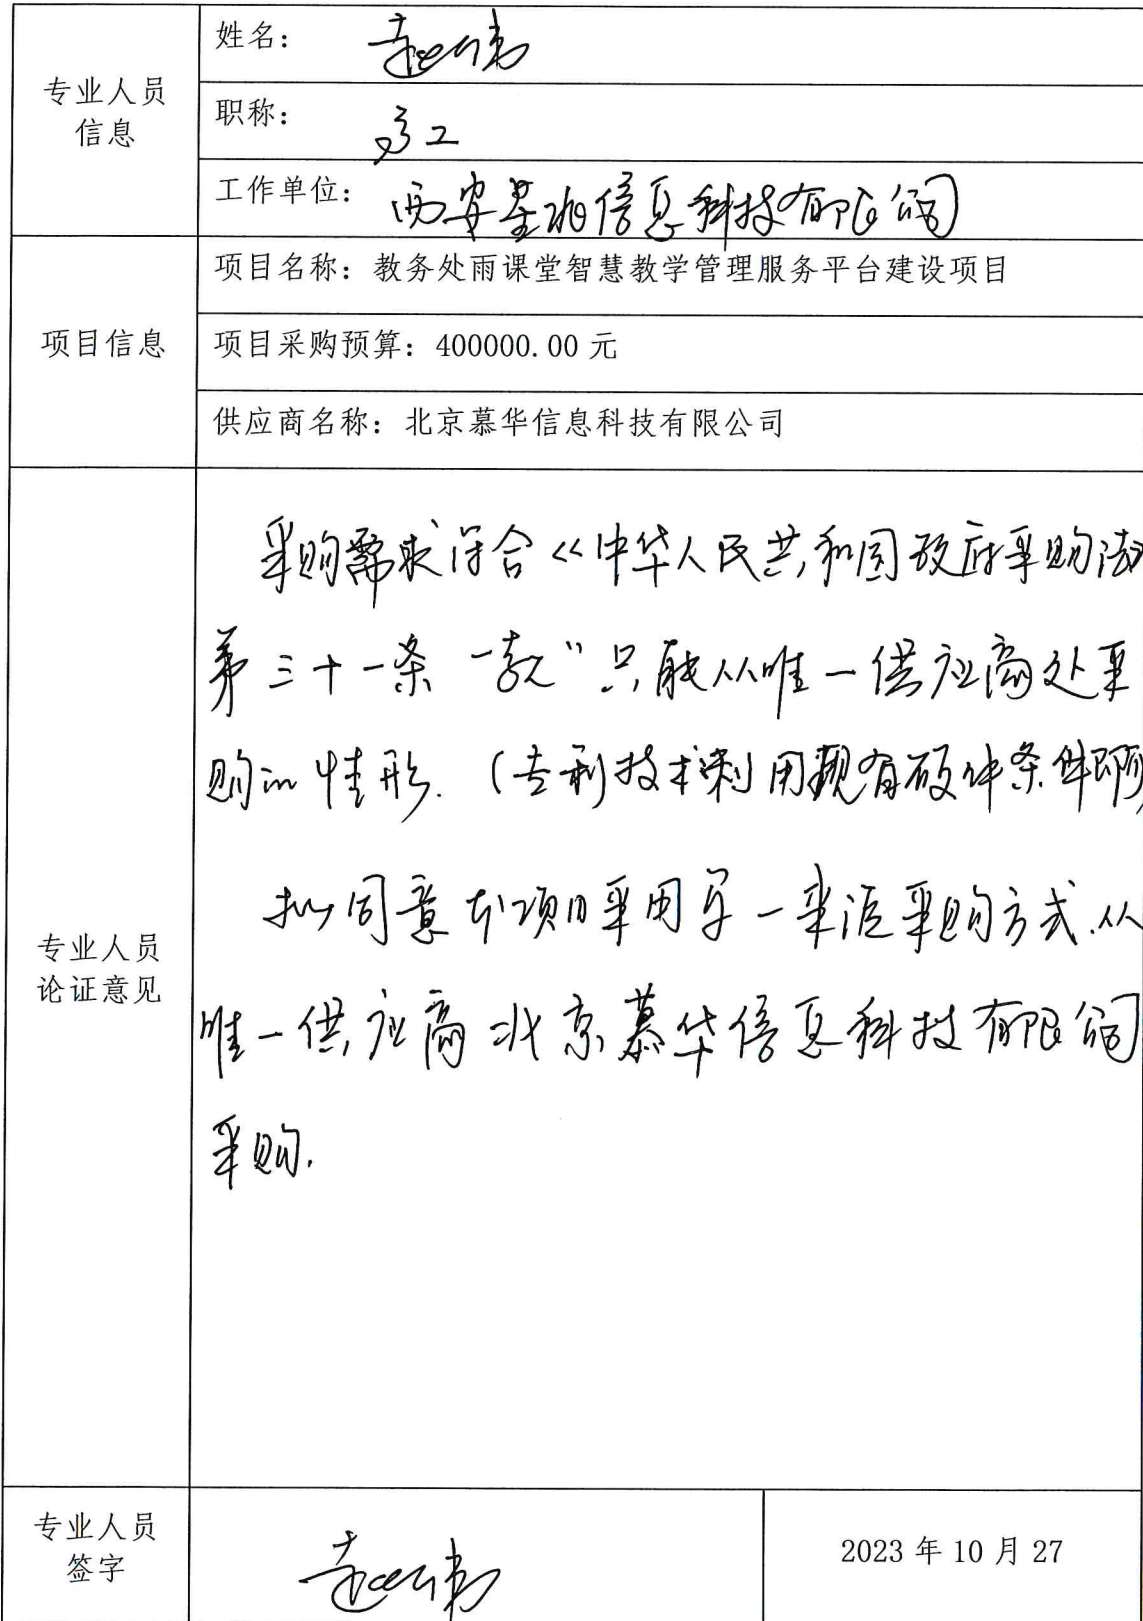 专业人员
信息
姓名：赵伟
职称：高工
工作单位：西安 信息科技有限公司
项目信息
项目名称：教务处雨课堂智慧教学管理服务平台建设项目
项目采购预算：400000.00 元
供应商名称：北京慕华信息科技有限公司
专业人员
论证意见
采购需求符合《中华人民共和国政府采购法
第三十一条一款"只能从唯一供应商处采
购的情形.（专利技术 利用现有硬件条件
拟同意本项目采用单一来源采购方式.从
唯一供应商北京慕华信息科技有限公司
采购.
专业人员
签字
赵伟
2023 年 10 月 27